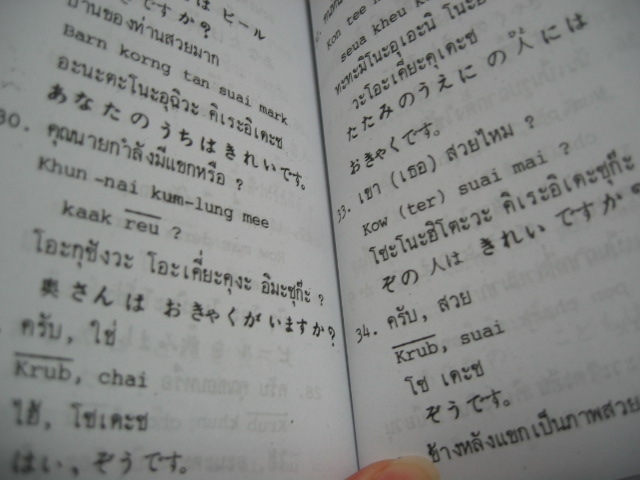 はビール
ですか?
บ้านของท่านสวยมาก
Barn korng tan suai mark
อะนะตะโนะอุฉิวะ คิเระอิเดะซ
あなたのうちはきれいです。
30. คุณนายกำลังมีแขกหรือ ?
Khun-nai kum-lung mee
kaak reu ?
โอะกุซังวะ โอะเคี่ยะคุงะ อิมะซุก๊ะ ?
奥さんは おきゃくがいますか?
ครับ, ใช่
Krub, chai
ไฮ้, โซ่เดะซ
はい, ぞうです。
kon tee
seua kheu
ทะทะมิโนะอุเอะนิ โนะ
วะโอะเคี่ยะคุเดะซ
たたみのうえにの人には
おきゃくです。
33. เขา (เธอ) สวยไหม ?
Kow (ter) suai mai ?
โซะโนะฮิโตะวะ คิเระอิเดะซุก๊ะ
ぞの人は きれいですか?
34. ครับ, สวย
Krub, suai
โซ่ เดะซ
ぞうです。
ข้างหลังแขกเป็นภาพสวย